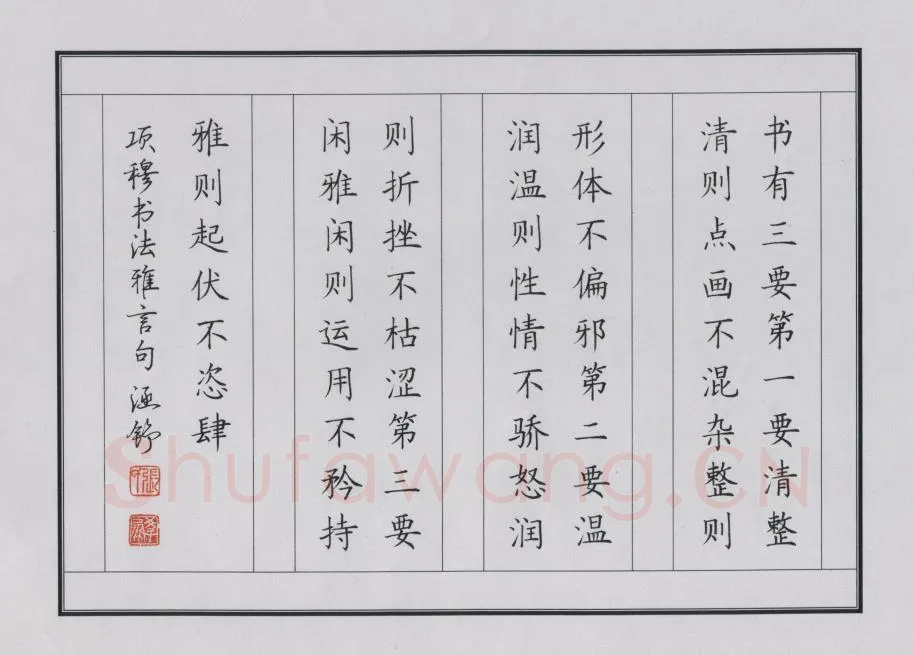 书有三要第一要清整
清则点画不混杂整则
形体不偏邪第二要温
润温则性情不骄怒润
则折挫不枯涩第三要
闲雅闲则运用不矜持
雅则起伏不恣肆
项穆书法雅言句 涵舒
Shufawang.CN